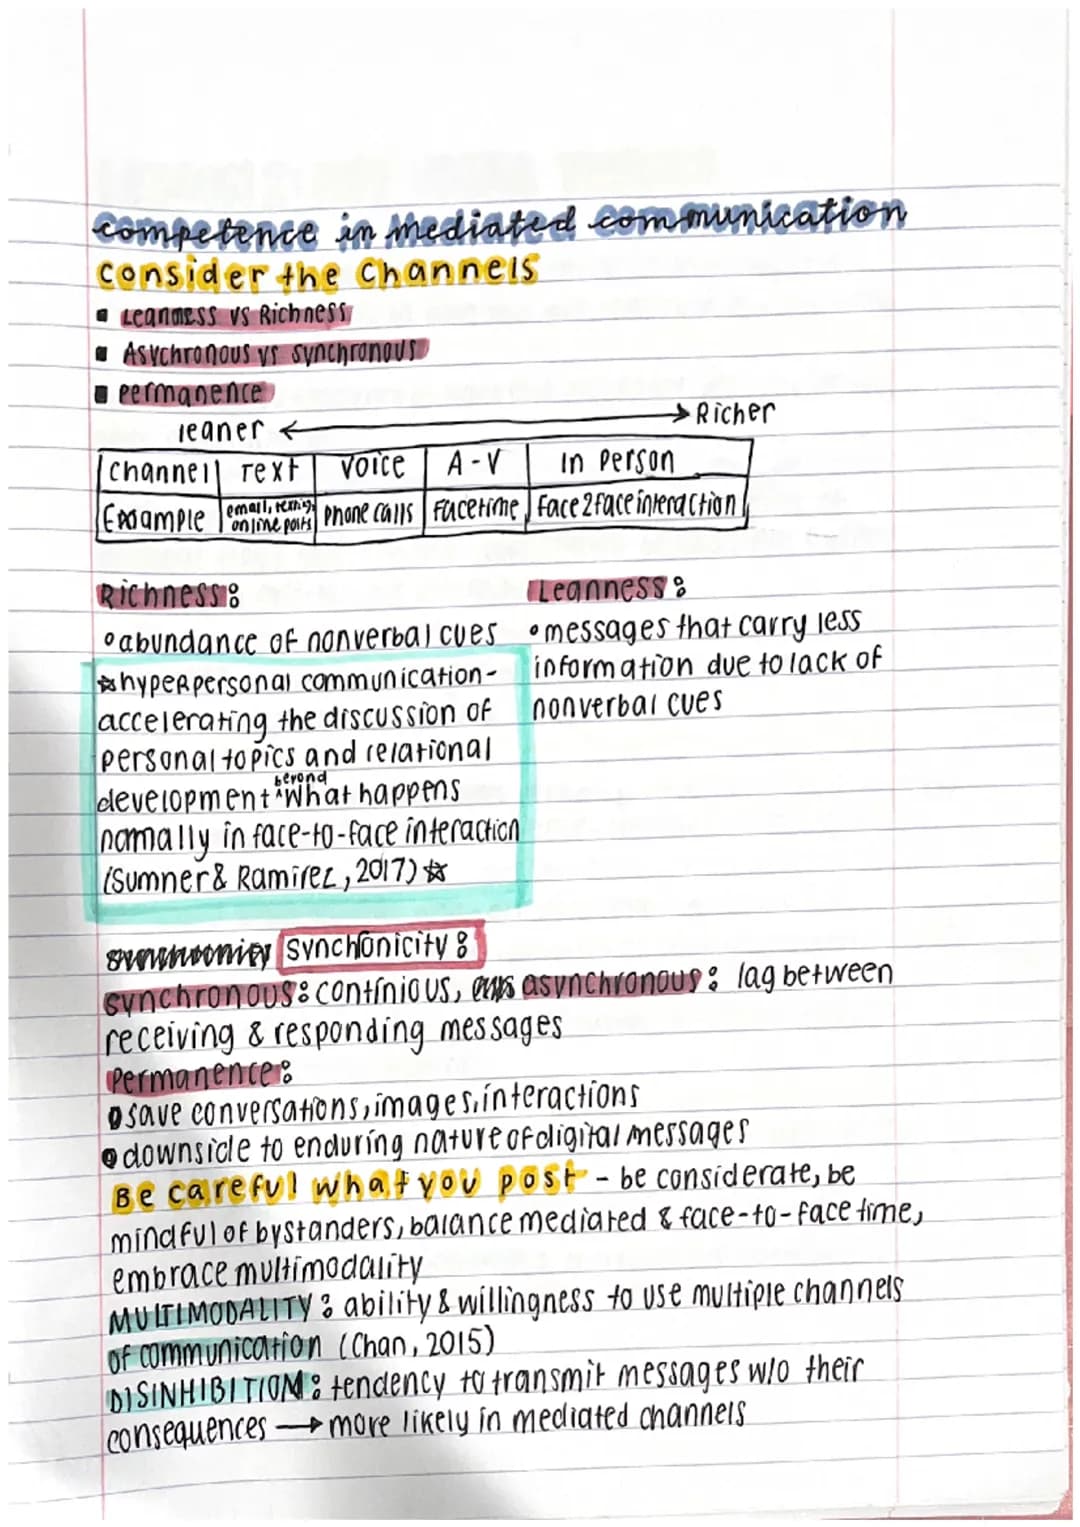 competence in Mediated communication
Consider the Channels
▪ Leanness vs Richness
▪ Asychronous vs synchronous
▪ permanence
leaner ⟷ Richer
Channel Text Voice A-V In Person
Example email, texting, online posts Phone calls Facetime Face 2 face interaction
Richness: Leanness:
• abundance of nonverbal cues • messages that carry less
☆ hyperpersonal communication- information due to lack of
accelerating the discussion of nonverbal cues
personal topics and relational
development ^beyond what happens
nomally in face-to-face interaction
(Sumner & Ramirez, 2017) ☆
Synchronicity:
synchronous: continious, asynchronous: lag between
receiving & responding messages
Permanence:
• save conversations, images, interactions
• downside to enduring nature of digital messages
Be careful what you post - be considerate, be
mindful of bystanders, balance mediated & face-to-face time,
embrace multimodality
MULTIMODALITY: ability & willingness to use multiple channels
of communication (Chan, 2015)
DISINHIBITION: tendency to transmit messages w/o their
consequences → more likely in mediated channels